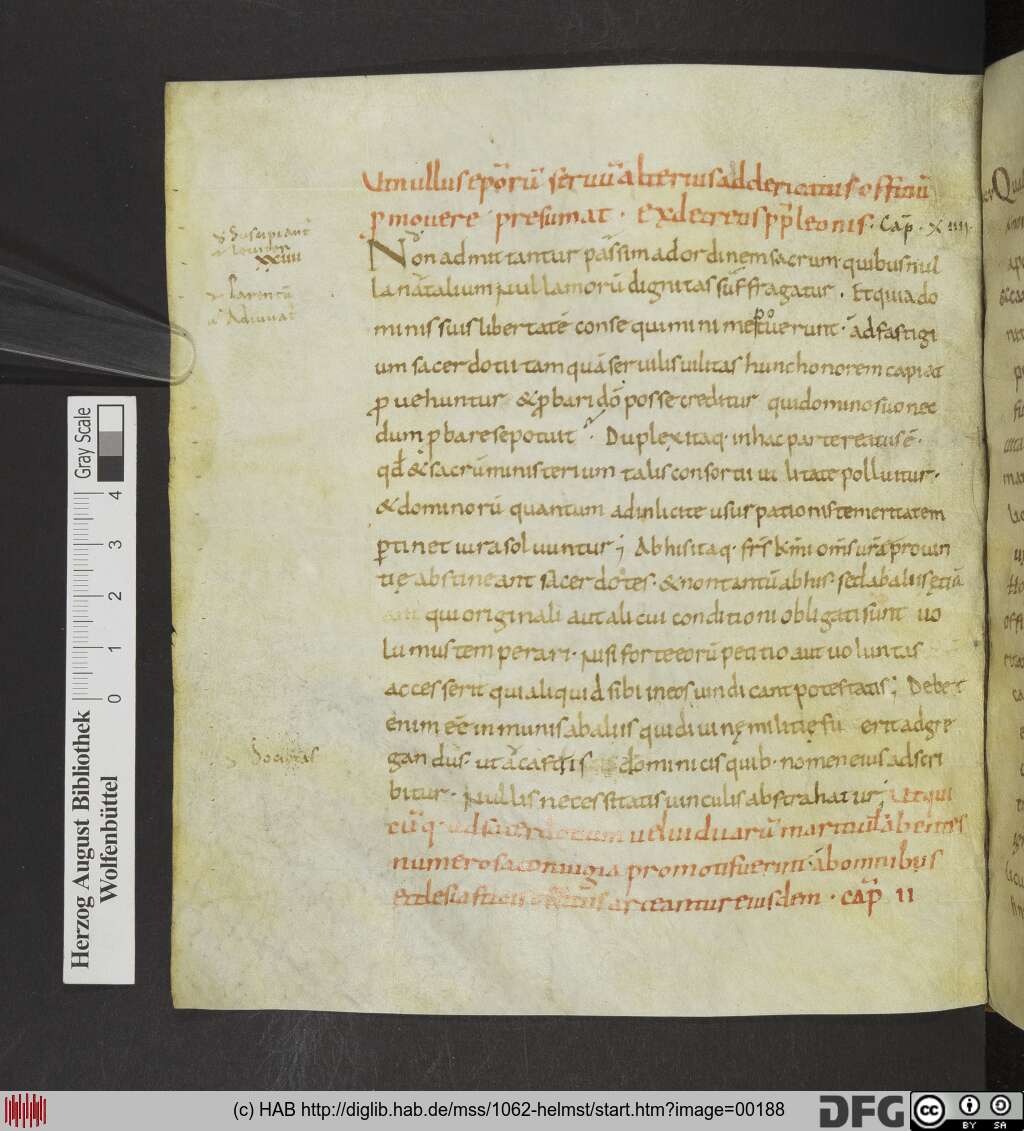 Ut nullus eporū seruū alterius ad clericatus officiū
pmouere presumat · ex decretis pp leonis · Cap · XIIII
Non admittantur passim ad ordinem sacrum quibus nul
la natalium nulla morū dignitas suffragatur · Et qui a do
minis suis libertatē consequi minime potuerunt · ad fastigi
um sacerdotii tamquā seruilis uilitas hunc honorem capiat
puehuntur & pbari dō posse creditur qui domino suo nec
dum pbare se potuit · Duplex itaq· in hac parte reatus ē ·
qđ & sacrū ministerium talis consortii uilitate polluitur ·
& dominorū quantum ad inlicite usurpationis temeritatem
ptinet iura soluuntur ; Ab his itaq· frs kmi oms urā prouin
tię abstineant sacerdotes · & non tantū ab his · sed ab aliis ętiā
qui originali aut alicui conditioni obligati sunt uo
lumus temperari · nisi forte eorū petitio aut uoluntas
accesserit qui aliquid sibi in eos uindicant potestatis ; Debet
enim eē inmunis ab aliis qui diuinę militię fu erit adgre
gandus · ut a castris dominicis quib· nomen eius adscri
bitur · nullis necessitatis uinculis abstrahatur ; Ut qui
cūq· ad sacerdotium uel uiduarū mariti ul habentes
numerosa coniugia promoti fuerint · ab omnibus
ecclesiasticis officiis arceantur eiusdem · cap II
suscipiant
XXIIII
Parentū
Societas
Gray Scale
0 1 2 3 4
Herzog August Bibliothek
Wolfenbüttel
(c) HAB http://diglib.hab.de/mss/1062-helmst/start.htm?image=00188
DFG
cc BY SA